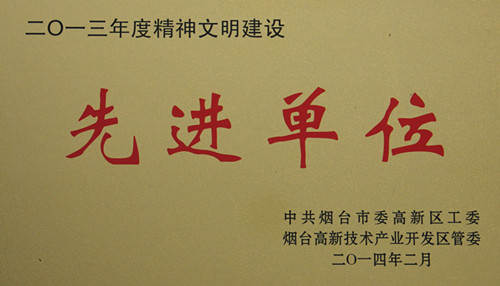 二〇一三年度精神文明建设
先进单位
中共烟台市委高新区工委
烟台高新技术产业开发区管委
二〇一四年二月